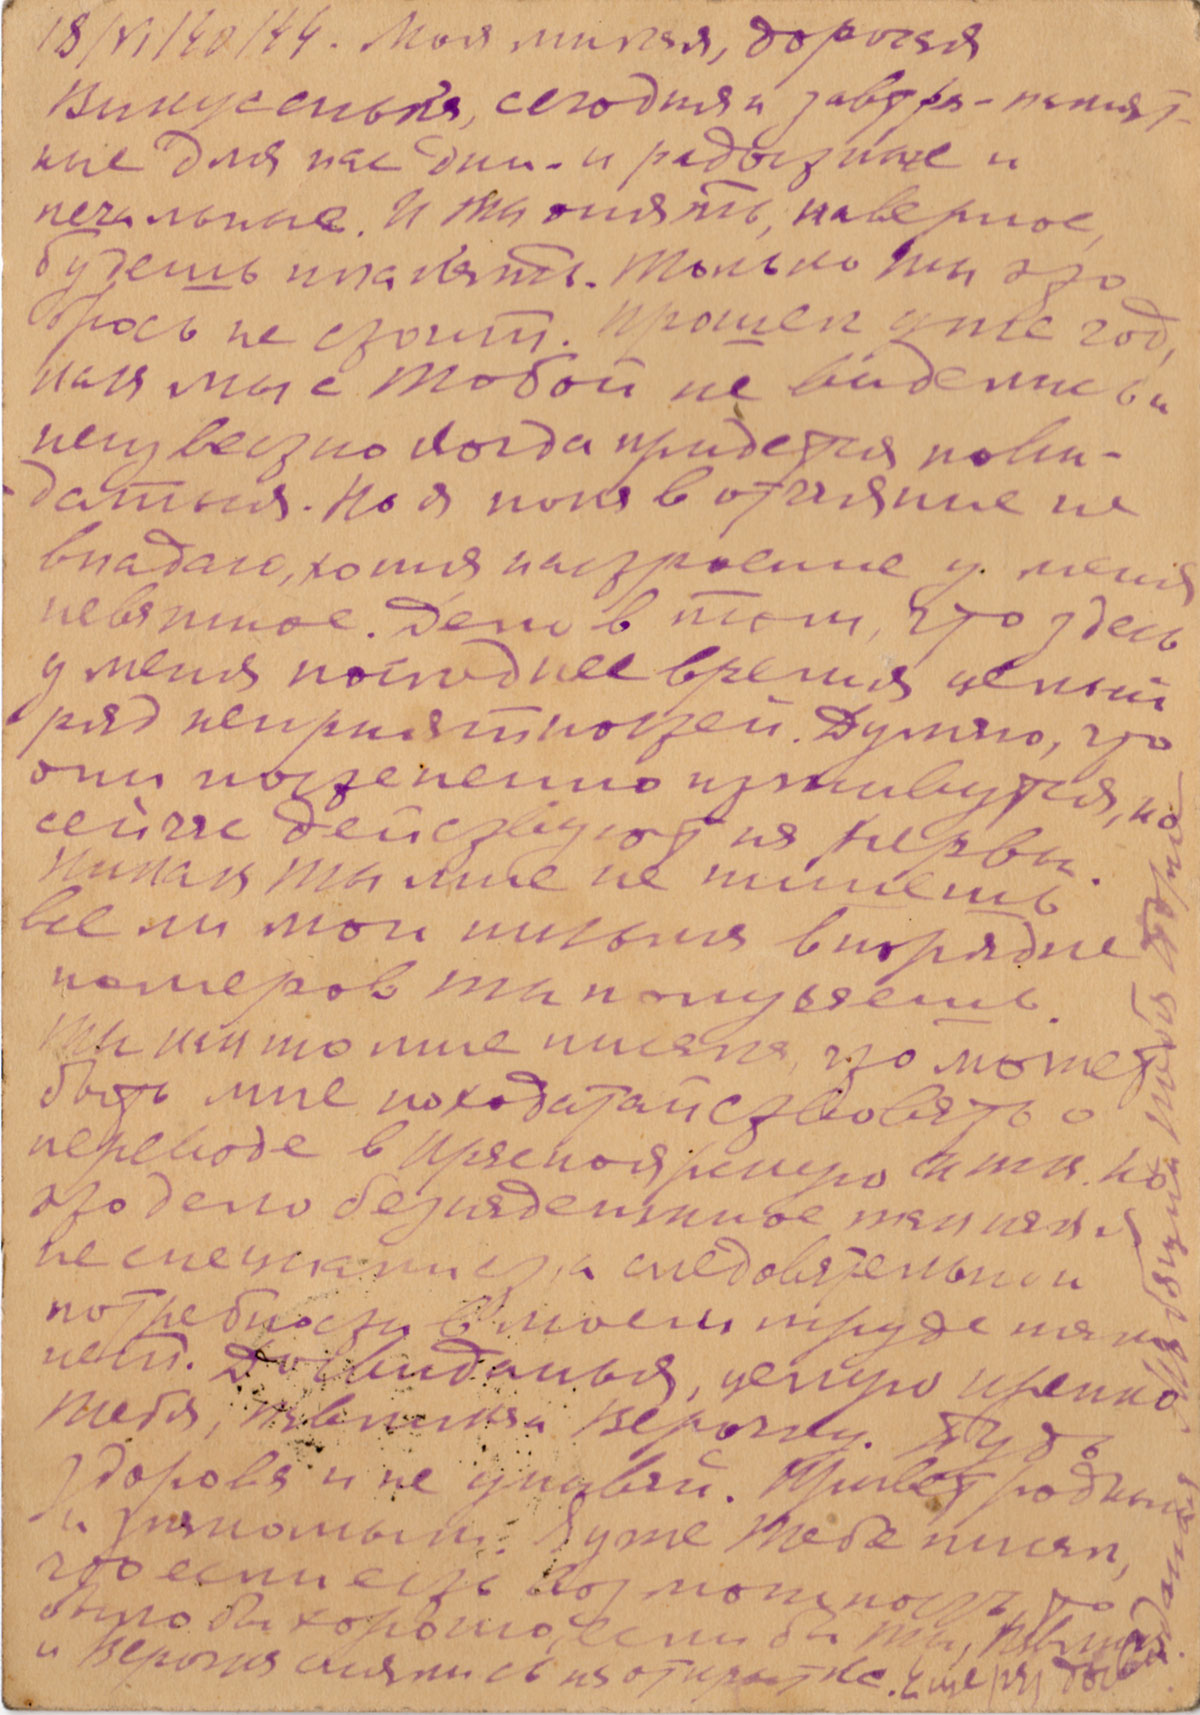 18/VI/40/44. Моя милая, дорогая
Викусенька, сегодня и завтра - памят-
ные для нас дни - и радостные и
печальные. И ты опять, наверное,
будешь плакать. Только ты это
брось не стоит. Прошел уже год,
как мы с тобой не виделись и
неизвестно когда придется пови-
даться. Но я пока в отчаяние не
впадаю, хотя настроение у меня
неважное. Дело в том, что здесь
у меня последнее время целый
ряд неприятностей. Думаю, что
они постепенно изживутся, но
сейчас действуют на нервы.
Никак ты мне не пишешь
все ли мои письма в порядке
номеров ты получаешь.
Ты как то мне писала, что может
быть мне походатайствовать о
переводе в Красноярск. Но
это дело безнадежное так как я
не специалист, а следовательно и
потребности в моем труде там
нет. До свиданья, целую крепко
тебя, и Верочку. Будь
здорова и не унывай. Привет родным
и знакомым. Я уже тебе писал,
что если есть возможность, то
было бы хорошо, если бы ты,
и Верочка снялись на открытке. Еще раз до сви
данья.